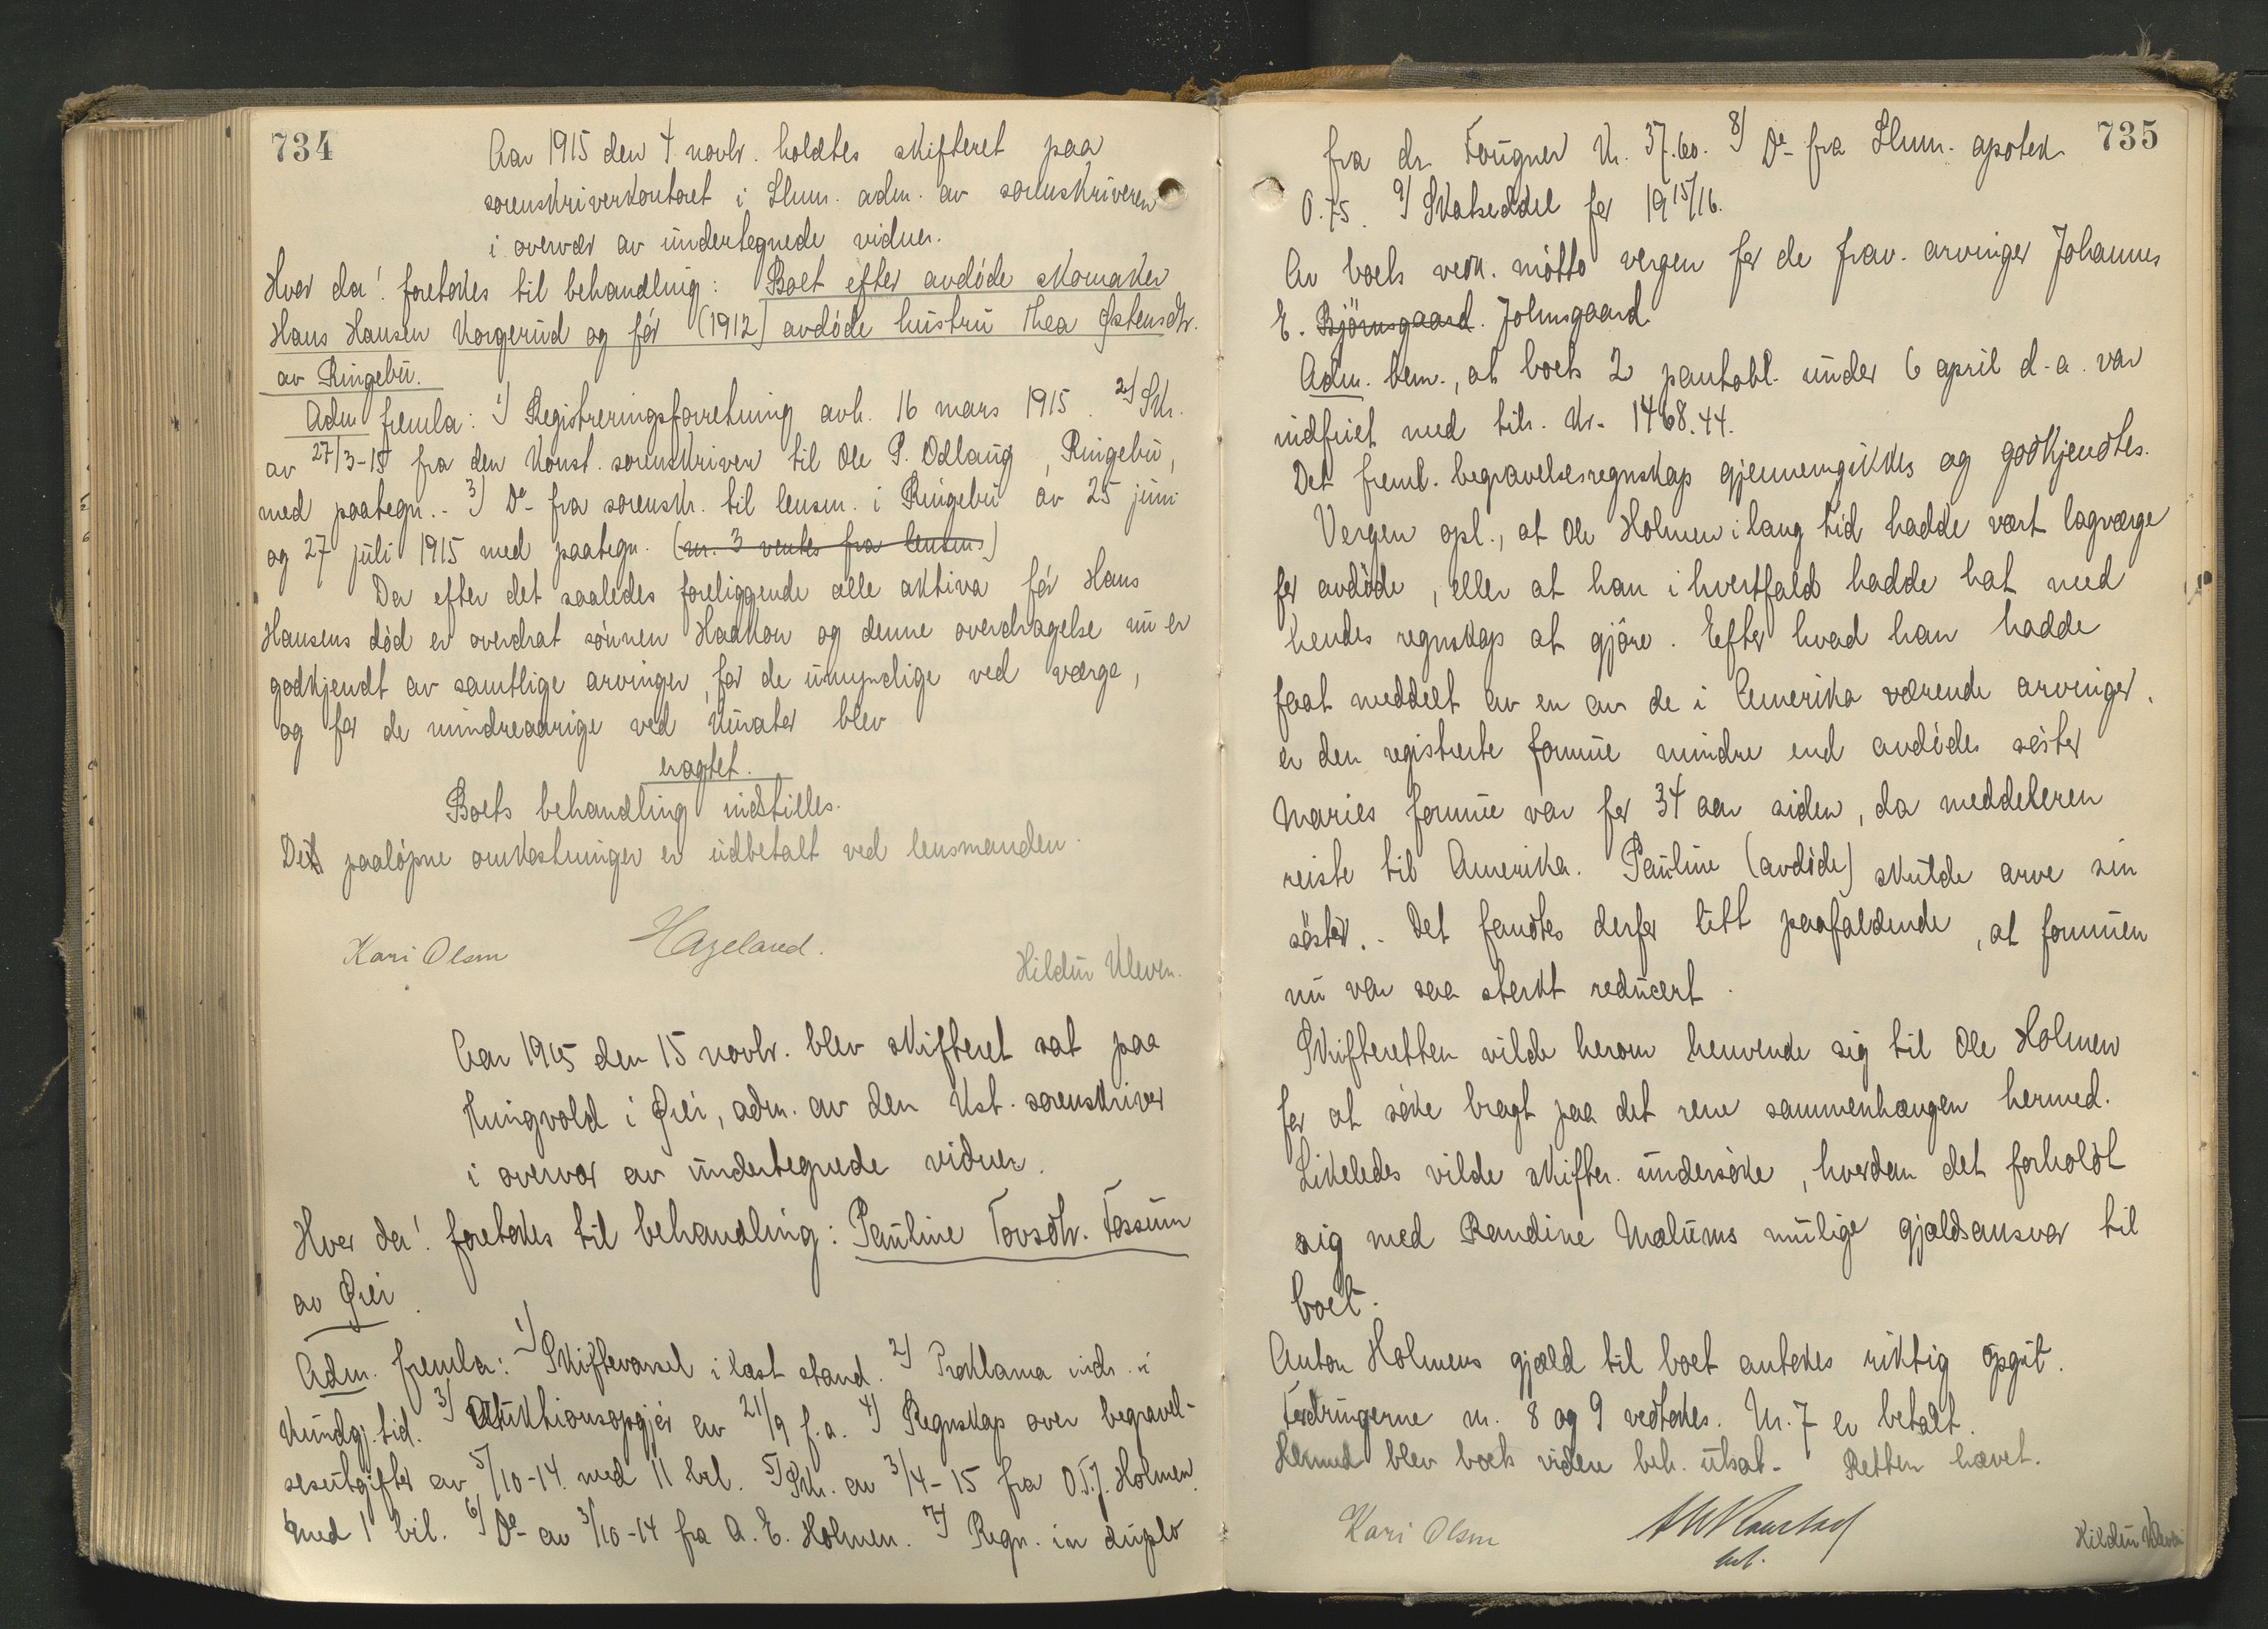 734
Aar 1915 den 4 novbr. holdtes skifteret paa
sorenskriverkontoret i Lhmr. adm. av sorenskriveren
i overvær av undertegnede vidner.
Hvor da! foretokes til behandling: Boet efter avdøde skomaker
Hans Hansen Korgerud og før (1912) avdøde hustru Thea Østensdtr.
av Ringebu.
Adm fremla: 1) Registreringsforretning avh. 16 mars 1915. 2) Skr.
av 27/3-15 fra den konst. sorenskriver til Ole P. Odlaug, Ringebu,
med paategn. - 3) Do- fra sorenskr. til lensm. i Ringebu av 25 juni
og 27 juli 1915 med paategn. (nr. 3 ventes fra lensm.)
Da efter det saaledes foreliggende alle aktiva før Hans
Hansens død er overdrat sønnen Haakon og denne overdragelse nu er
godkjendt av samtlige arvinger, for de umyndige ved værge,
og for de mindreaarige ved kurator blev
eragtet.
Boets behandling indstilles.
De paaløpne omkostninger er utbetalt ved lensmanden.
Kari Olsen Hageland. Hildur Kleven.
Aar 1915 den 15 novbr. blev skifteret sat paa
Kringvold i Øier, adm. av den kst. sorenskriver
i overvær av undertegnede vidner.
Hvor da! foretokes til behandling: Pauline Tovsdtr. Fossum
av Øier.
Adm. fremla: 1) Skiftevarsel i læst stand. 2) Proklama indr. i
kundgj. tid. 3) Auktionsopgjør av 21/9 f.a. 4) Regnskap over begravel-
sesutgifter av 5/10-14 med 11 bil. 5) Skr. av 3/4-15 fra O.T.J. Holmen
med 1 bil. 6) Do- av 3/10-14 fra A. E. Holmen. 7) Regn. in duplo
735
fra dr. Fougner kr. 37.60. 8) Do- fra Lhmr. apotek
0.75. 9) Skatseddel for 1915/16.
Av boets vedk. møtte vergen for de frav. arvinger Johannes
E. Bjørnsgaard. Johnsgaard.
Adm. bem., at boets 2 pantobl. under 6 april d.a. var
indfriet med tils. kr. 1468.44.
Det freml. begravelsesregnskap gjennemgikkes og godkjendtes.
Vergen opl., at Ole Holmen i lang tid hadde vært lagværge
for avdøde, eller at han i hvertfald hadde hat med
hendes regnskap at gjøre. Efter hvad han hadde
faat meddelt av en av de i Amerika værende arvinger,
er den registrerte formue mindre end avdødes søster
Maries formue var for 34 aar siden, da meddeleren
reiste til Amerika. Pauline (avdøde) skulde arve sin
søster. - Det fandtes derfor litt paafaldende, at formuen
nu var saa sterkt reducert.
Skifteretten vilde herom henvende sig til Ole Holmen
for at søke bragt paa det rene sammenhængen hermed.
Likeledes vilde skifter. undersøke, hvordan det forholdt
sig med Randine Mælums mulige gjældsansvar til
boet.
Anton Holmens gjæld til boet antokes riktig opgit.
Fordringerne nr. 8 og 9 vedtokes. Nr. 7 er betalt.
Hermed blev boets videre beh. utsat. - Retten hævet.
Kari Olsen
kst.
Hildur Kleven